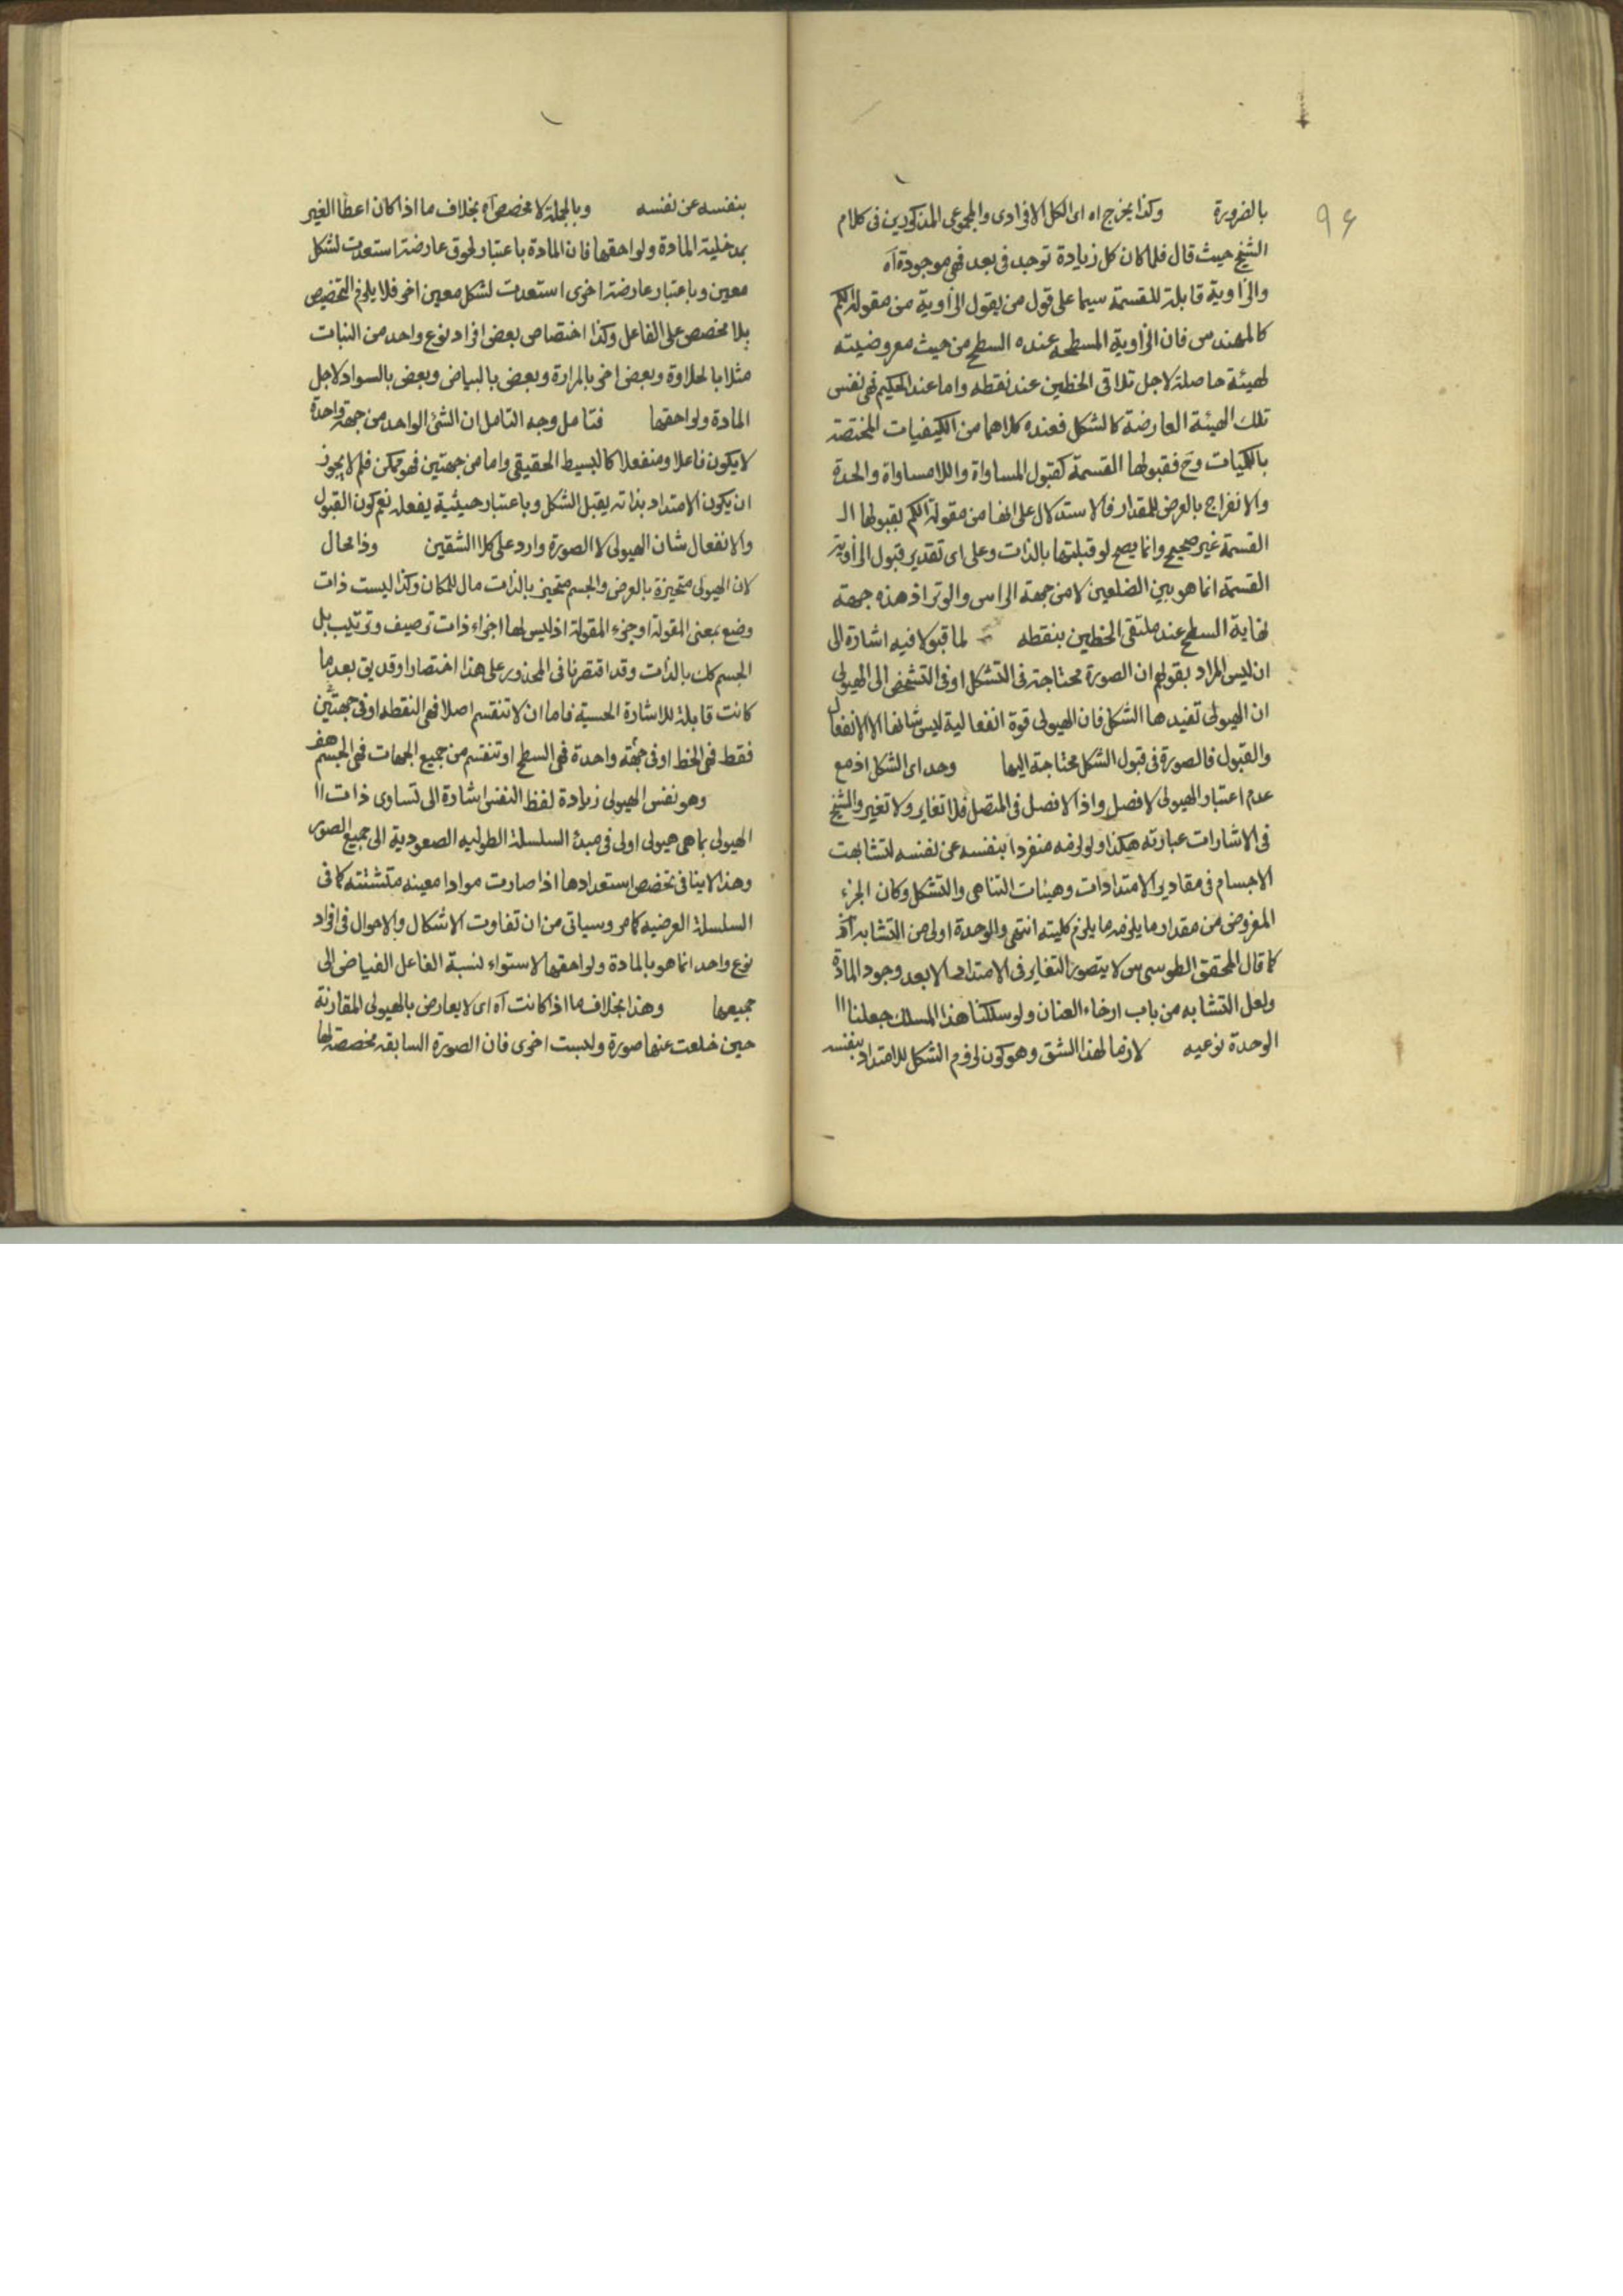 ٩٤
بالضرورة وكذا يخرج اه اى الكل الافرادى والمجموعى المذكورين فى كلام
الشيخ حيث قال فلما كان كل زيادة توجد فى بعد فهى موجودة آه
والزاوية قابلة للقسمة سيما على قول من يقول الزاوية من مقولة الكم
كالمهندس فان الزاوية المسطحه عنده السطح من حيث معروضيته
لهيئة حاصلة لاجل تلاقى الخطين عند نقطه واما عند الحكيم فهى نفس
تلك الهيئة العارضة كالشكل فعنده كلاهما من الكيفيات المختصة
بالكميات وح فقبولها القسمة كقبول المساواة واللامساواة والحدة
والانفراج بالعرض للمقدار فالاستدلال على انها من مقولة الكم بقبولها ال
القسمة غير صحيح وانما يصح لو قبلتها بالذات وعلى اى تقدير قبول الزاوية
القسمة انما هو بين الضلعين لا من جهة الراس والوتر اذ هذه جهة
نهاية السطح عند ملتقى الخطين بنقطه لما قبولا فيه اشارة الى
ان ليس المراد بقولهم ان الصورة محتاجة فى التشكل او فى التشخص الى الهيولى
ان الهيولى تفيدها الشكل فان الهيولى قوة انفعالية ليس شانها الا الانفعال
والقبول فالصورة فى قبول الشكل محتاجة اليها وحد اى الشكل اذ مع
عدم اعتبار الهيولى لا فصل واذ لا فصل فى المتصل فلا تغاير ولا تغير والشيخ
فى الاشارات عبارته هكذا ولو لزمه منفردا بنفسه عن نفسه لتشابهت
الاجسام فى مقادير الامتدادات وهيئات التناهى والتشكل وكان الجزء
المفروض من مقدار ما يلزمه ما يلزم كليته انتهى والوحدة اولى من التشابه اذ
كما قال المحقق الطوسى س لا يتصور التغاير فى الامتداد الا بعد وجود المادة
ولعل التشابه من باب ارخاء العنان ولو سلكنا هذا المسلك جعلنا اا
الوحدة نوعيه لازما لهذا الشق وهو كون لزوم الشكل للامتداد بنفسه
بنفسه عن نفسه وبالجملة لا مخصص اه بخلاف ما اذا كان اعطا الغير
بمدخلية المادة ولواحقها فان المادة باعتبار لحوق عارضة استعدت لشكل
معين وباعتبار عارضة اخرى استعدت لشكل معين اخر فلا يلزم التخصيص
بلا مخصص على الفاعل وكذا اختصاص بعض افراد نوع واحد من النبات
مثلا بالحلاوة وبعض اخر بالمرارة وبعض بالبياض وبعض بالسواد لاجل
المادة ولواحقها فتامل وجه التامل ان الشئ الواحد من جهة واحدة
لا يكون فاعلا ومنفعلا كالبسيط الحقيقى واما من جهتين فهو ممكن فلم لا يجوز
ان يكون الامتداد بذاته يقبل الشكل وباعتبار حيثية يفعله نعم كون القبول
والانفعال شان الهيولى لا الصورة وارد على كلا الشقين وذا محال
لان الهيولى متحيزة بالعرض والجسم متحيز بالذات مال للمكان وكذا ليست ذات
وضع بمعنى المقولة او جزء المقولة اذ ليس لها اجزاء ذات ترصيف وترتيب بل
الجسم كك بالذات وقد اقتصرنا فى المحذور على هذا اختصارا وقد بقى بعد ما
كانت قابلة للاشارة الحسية فاما ان لا تنقسم اصلا فهى النقطه او فى جهتين
فقط فهى الخط او فى جهة واحدة فهى السطح او تنقسم من جميع الجهات فهى الجسم هف
وهو نفس الهيولى زيادة لفظ النفس اشارة الى تساوى ذات اا
الهيولى بما هى هيولى اولى فى مبدئ السلسلة الطوليه الصعودية الى جميع الصور
وهذا لا ينافى تخصص استعدادها اذا صارت موادا معينه متشتته كما فى
السلسلة العرضيه كما مر وسياتى من ان تفاوت الاشكال والاحوال فى افراد
نوع واحد انما هو بالمادة ولواحقها لاستواء نسبة الفاعل الفياض الى
جميعها وهذا بخلاف ما اذا كانت آه اى لا يعارض بالهيولى المقارنة
حين خلعت عنها صورة ولبست اخرى فان الصورة السابقه مخصصة لها